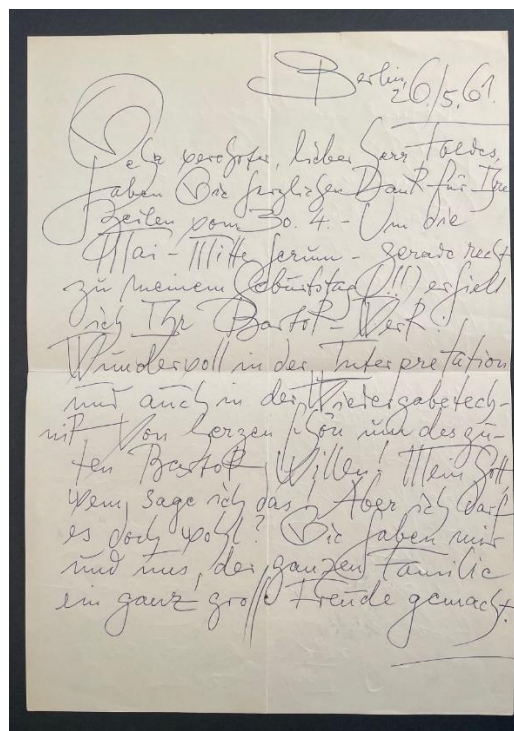 Berlin, 26./5.61.
Sehr verehrter, lieber Herr Foldes,
haben Sie herzlichen Dank für Ihre
Zeilen vom 30. 4. - Um die
Mai - Mitte herum - gerade recht
zu meinem Geburtstag (!!!) erhielt
ich Ihr Bartok - Werk!
Wundervoll in der Interpretation
und auch in der Wiedergabetech-
nik Von herzen um des gu-
ten Bartok Willen! Mein Gott,
wem, sage ich das! Aber ich darf
es doch wohl? Sie haben mir
und uns, der ganzen Familie
ein ganz große Freude gemacht.